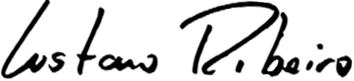 Gustavo Ribeiro